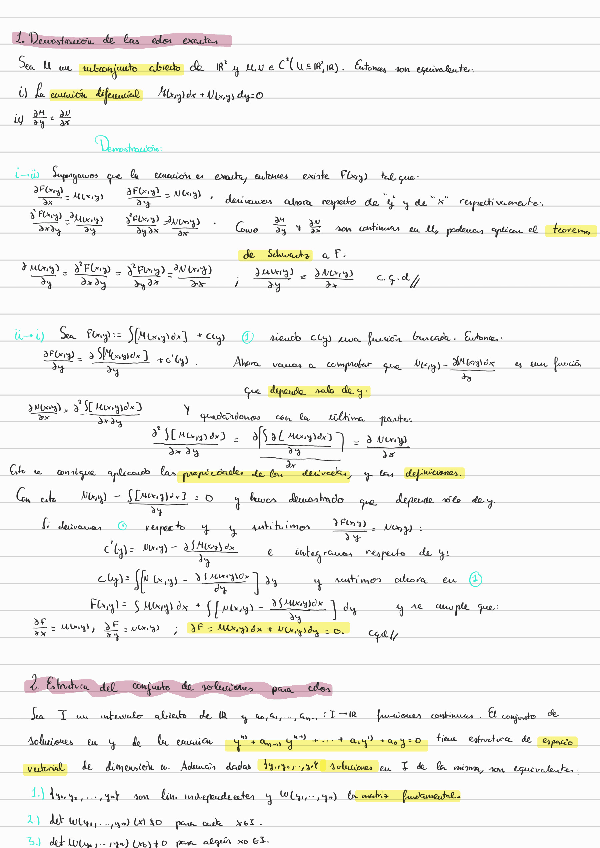 1. Demostración de las edos exactas
Sea U un subconjunto abierto de ℝ² y M,N ∈ C²(U⊆ℝ²,ℝ). Entonces son equivalente:
i) La ecuación diferencial M(x,y)dx + N(x,y)dy=0
ii) ∂M/∂y = ∂N/∂x
Demostración:
i→ii) Supongamos que la ecuación es exacta, entonces existe F(x,y) tal que:
∂F(x,y)/∂x = M(x,y) ∂F(x,y)/∂y = N(x,y), derivamos ahora respecto de "y" y de "x" respectivamente:
∂²F(x,y)/∂x∂y = ∂M(x,y)/∂y ∂²F(x,y)/∂y∂x = ∂N(x,y)/∂x. Como ∂M/∂y y ∂N/∂x son continuas en U, podemos aplicar el teorema
de Schwartz a F.
∂M(x,y)/∂y = ∂²F(x,y)/∂x∂y = ∂²F(x,y)/∂y∂x = ∂N(x,y)/∂x ; ∂M(x,y)/∂y = ∂N(x,y)/∂x c.q.d//
ii→i) Sea F(x,y):= ∫[M(x,y)dx] + c(y) ① siendo c(y) una función buscada. Entonces:
∂F(x,y)/∂y = ∂∫[M(x,y)dx]/∂y + c'(y). Ahora vamos a comprobar que N(x,y) - ∂∫M(x,y)dx/∂y es una función
que depende solo de y:
∂N(x,y)/∂x = ∂²∫[M(x,y)dx]/∂x∂y y quedándonos con la última parte:
∂²∫[M(x,y)dx]/∂x∂y = ∂[∫∂(M(x,y)dx]/∂y]/∂x = ∂N(x,y)/∂x
Esto se consigue aplicando las propiedades de las derivadas, y las definiciones.
Con esto N(x,y) - ∫[M(x,y)dx]/∂y = 0 y hemos demostrado que depende sólo de y.
Si derivamos ① respecto y y sustituimos ∂F(x,y)/∂y = N(x,y):
c'(y) = N(x,y) - ∂∫M(x,y)dx/∂y e integramos respecto de y:
c(y) = ∫[N(x,y) - ∂∫M(x,y)dx/∂y] ∂y y sustimos ahora en ①
F(x,y) = ∫M(x,y)dx + ∫[N(x,y) - ∂∫M(x,y)dx/∂y] dy y se cumple que:
∂F/∂x = M(x,y), ∂F/∂y = N(x,y) ; ∂F = M(x,y)dx + N(x,y)dy = 0. cqd//
2. Estructura del conjunto de soluciones para edos
Sea I un intervalo abierto de ℝ y a₀,a₁,..,aₙ₋₁ : I→ℝ funciones continuas. El conjunto de
soluciones en y de la ecuación y⁽ⁿ⁾ + aₙ₋₁y⁽ⁿ⁻¹⁾ + ... + a₁y⁽¹⁾ + a₀y = 0 tiene estructura de espacio
vectorial de dimensión n. Además dadas {y₁,y₂,..,yₙ} soluciones en I de la misma, son equivalentes:
1.) {y₁,y₂,...,yₙ} son lin. independientes y W(y₁,..,yₙ) la matriz fundamental.
2) det W(y₁,..,yₙ)(x) ≠ 0 para cada x∈I.
3.) det W(y₁,..,yₙ)(x₀) ≠ 0 para algún x₀∈I.